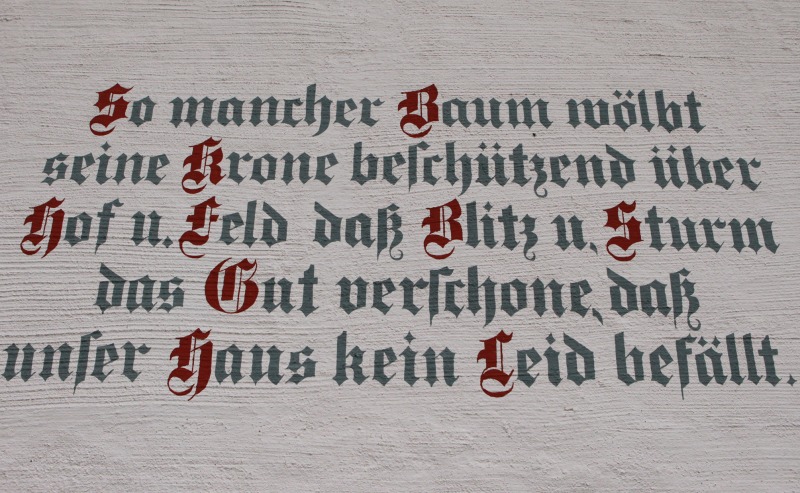 So mancher Baum wölbt
seine Krone beſchützend über
Hof u. Feld daß Blitz u. Sturm
das Gut verſchone, daß
unſer Haus kein Leid befällt.